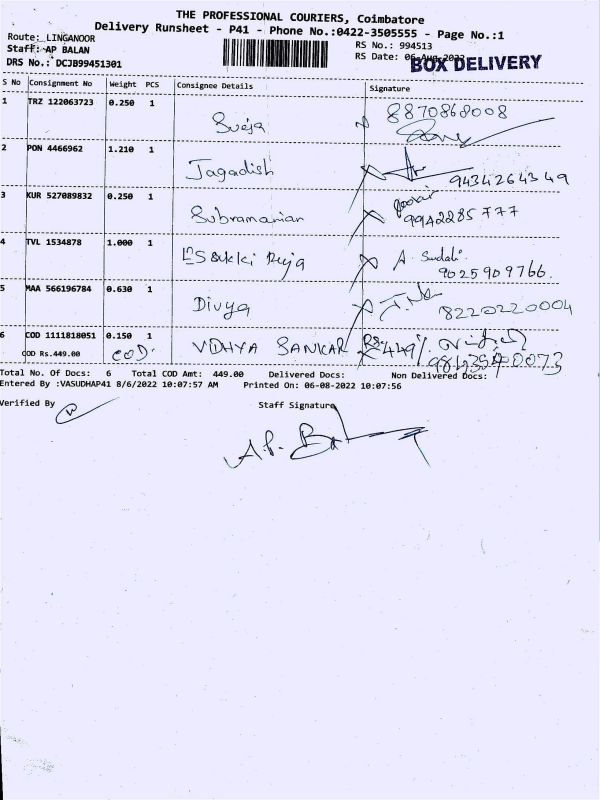 THE PROFESSIONAL COURIERS, Coimbatore
Delivery Runsheet - P41 - Phone No.:0422-3505555 - Page No.:1
Route: LINGANOOR
RS No.: 994513
Staff: AP BALAN
RS Date: 06-Aug-2022
DRS No.: DCJB99451301
BOX DELIVERY
S No Consignment No Weight PCS Consignee Details Signature
1 TRZ 122063723 0.250 1
8870868008
2 PON 4466962 1.210 1 Jagadish
9434264349
3 KUR 527089832 0.250 1 Subramanian
9942285777
4 TVL 1534878 1.000 1
9025909766.
5 MAA 566196784 0.630 1 Divya
8220220004
6 COD 1111818051 0.150 1 VDHYA SANKAR RS 449/.
COD Rs.449.00 COD.
Total No. Of Docs: 6 Total COD Amt: 449.00 Delivered Docs: Non Delivered Docs:
Entered By :VASUDHAP41 8/6/2022 10:07:57 AM Printed On: 06-08-2022 10:07:56
Verified By
Staff Signature